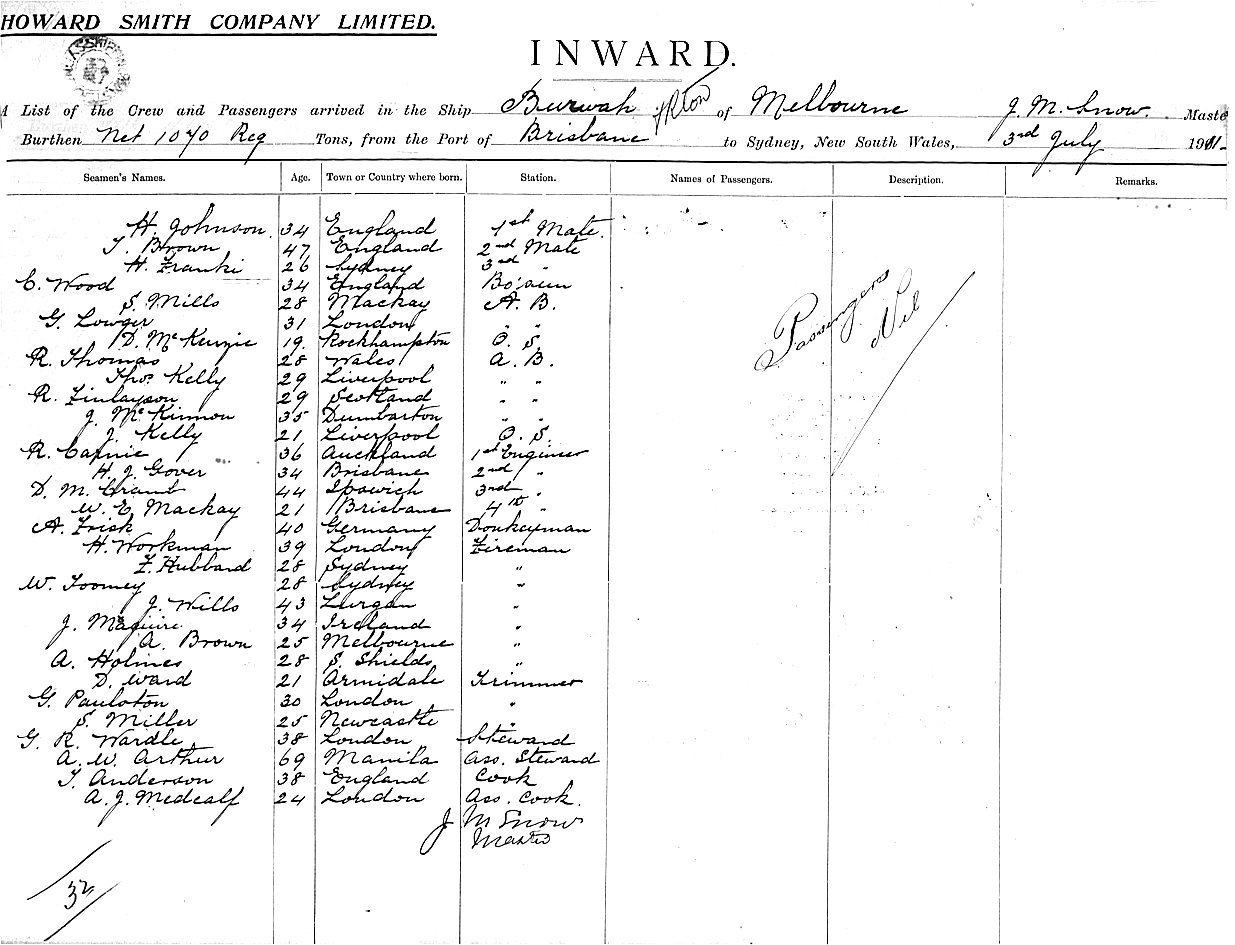 HOWARD SMITH COMPANY LIMITED.
INWARD.
A List of the Crew and Passengers arrived in the Ship Burwah of Melbourne J. M. Snow. Maste
Burthen Net 1070 Reg Tons, from the Port of Brisbane to Sydney, New South Wales, 3rd July 1911-
Seamen's Names. Age. Town or Country where born. Station. Names of Passengers. Description. Remarks.
H. Johnson 34 England 1st Mate.
T. Brown 47 England 2nd Mate
H. Franki 26 Sydney 3rd "
E. Wood 34 England Bo'sun
S. Mills 28 Mackay A. B.
G. Lowger 31 London " "
D. McKenzie 19. Rockhampton O. S.
R. Thomas 28 Wales A. B.
Thos. Kelly 29 Liverpool " "
R. Finlayson 29 Scotland " "
J. McKinnon 35 Dumbarton " "
J. Kelly 21 Liverpool O. S.
R. 36 Auckland 1st Engineer
H. J. Gover 34 Brisbane 2nd "
D. M. 44 Ipswich 3rd "
W. E. Mackay 21 Brisbane 4th "
A. Frisk 40 Germany Donkeyman
H. Workman 39 London Fireman
F. Hubbard 28 Sydney "
W. Toomey 28 Sydney "
J. Wills 43 Lurgan "
J. Maguire 34 Ireland "
A. Brown 25 Melbourne "
A. Holmes 28 S. Shields "
D. Ward 21 Armidale Trimmer
G. Paulston 30 London "
S. Miller 25 Newcastle "
G. R. Wardle 38 London Steward
A. W. Arthur 69 Manila Ass. Steward
T. Anderson 38 England Cook
A. J. Medcalf 24 London Ass. Cook.
J M Snow
Master
Passengers
Nil
32